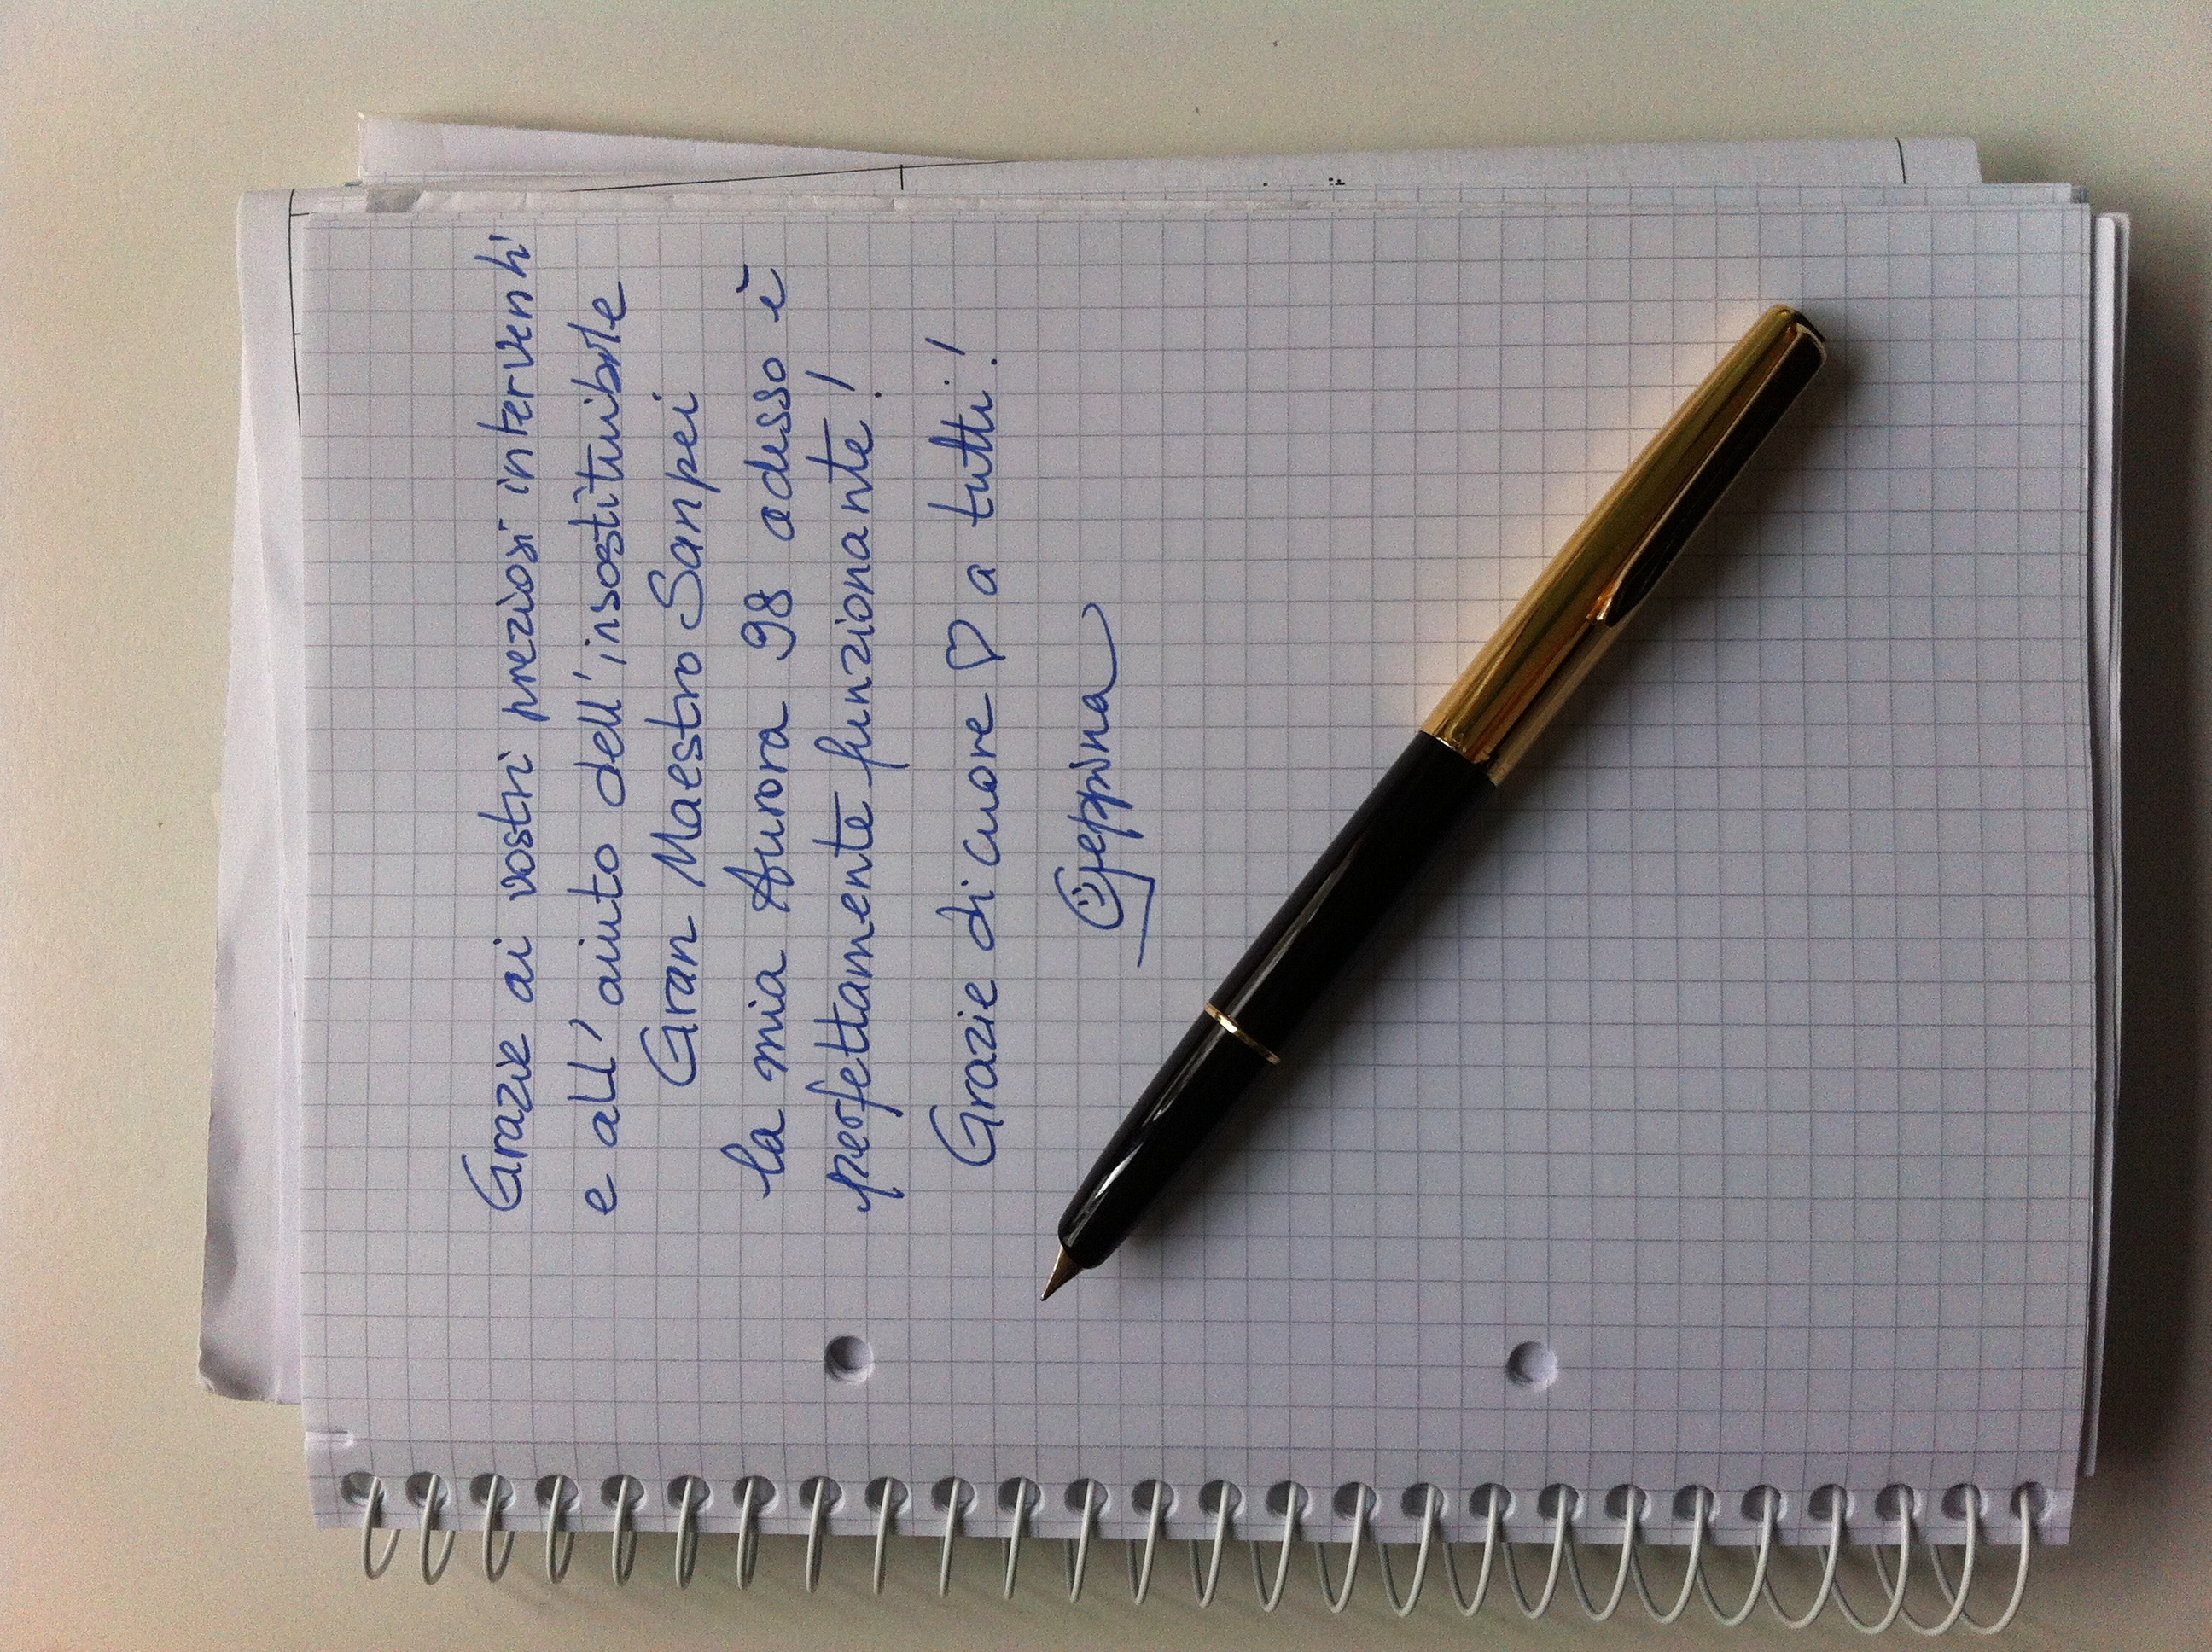 Grazie ai vostri preziosi interventi
e all'aiuto dell'insostituibile
Gran Maestro Sanpei
la mia Aurora 98 adesso è
perfettamente funzionante!
Grazie di cuore ♡ a tutti!
Geppina